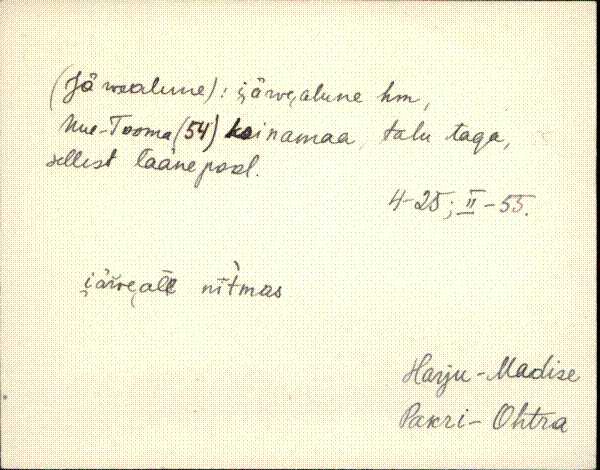 (Järvealune): i̯ärve̮alune hm,
Uue-Tooma (54) koinamaa, talu taga,
sellest läänepool.
4-25; II-55.
i̯ärve̮alt nìtmas
Harju-Madise
Pakri-Ohtra